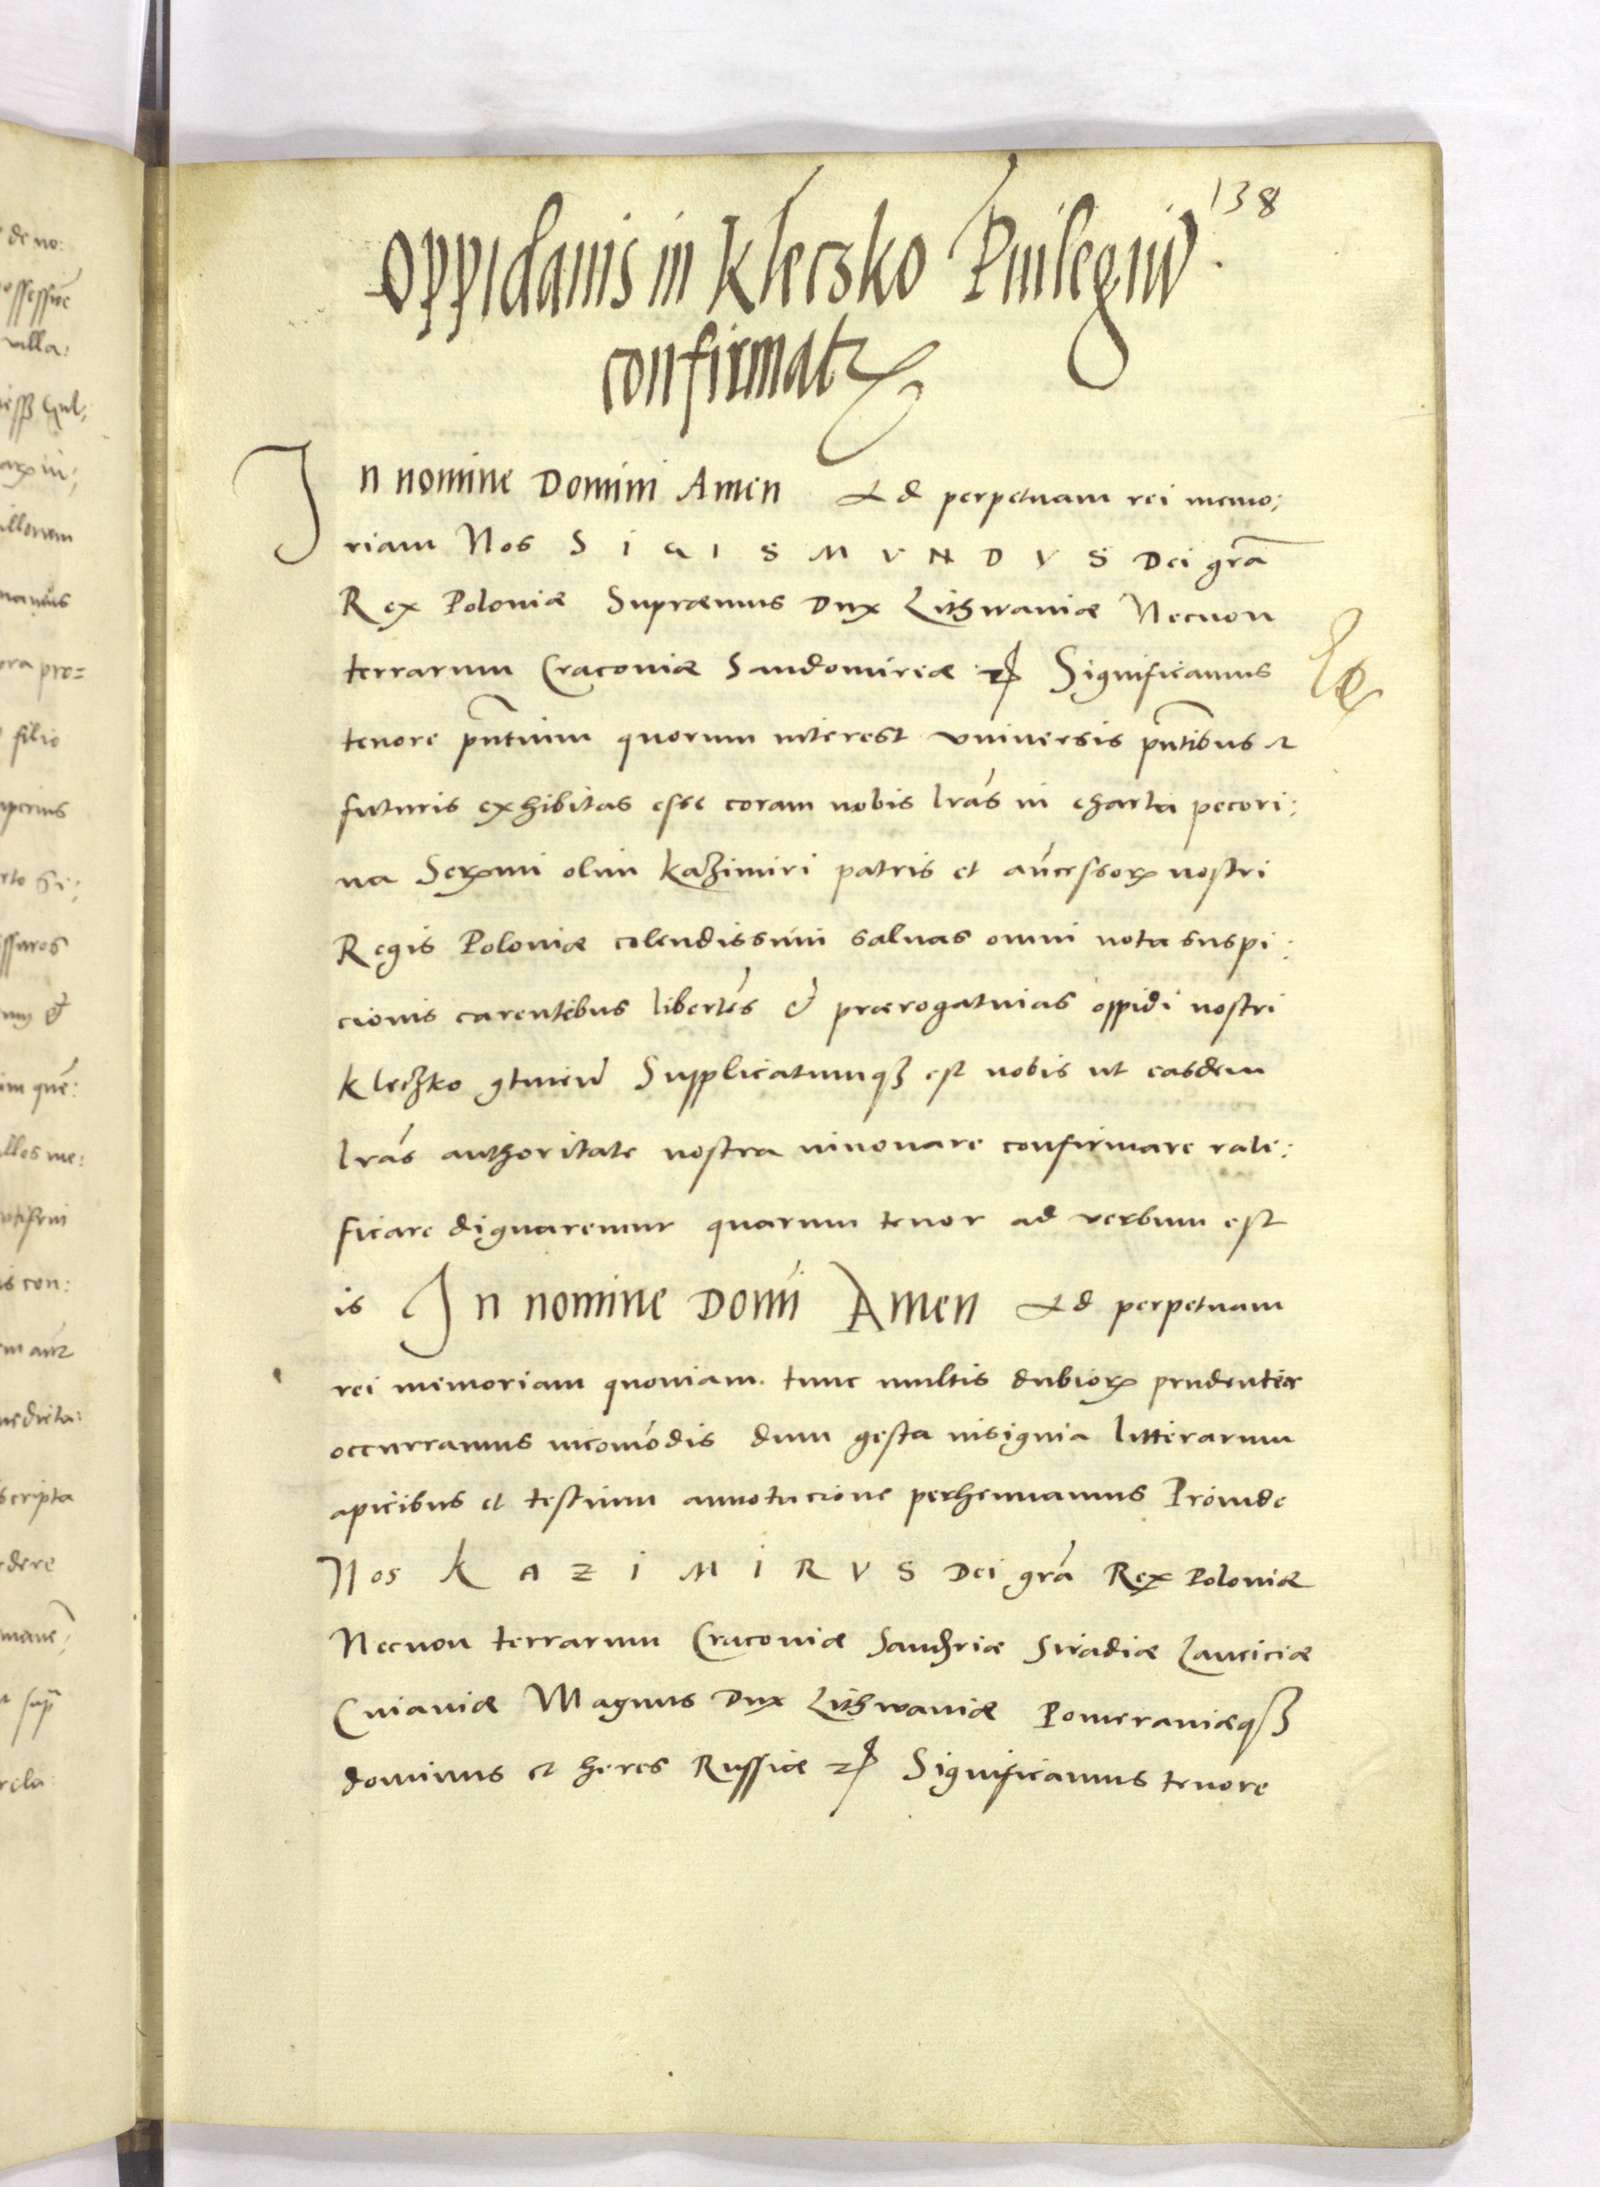 138
Oppidanis in Kleczko Priuilegiũ
confirmatr
In nomine Domini Amen Ad perpetuam rei memo:
riam Nos SIGISMVNDVS Dei gr̃a
Rex Poloniæ Supræmus Dux Lithwaniæ Necnon
terrarum Craconiæ Sandomiriæ etc Significamus
tenore pñtium quorum interest vniuersis pñtibus et
futuris exhibitas esse coram nobis lr̃as in charta pecori:
na Serx̃mi olim Kazimiri patris et añcessorꝝ nostri
Regis Poloniæ colendissimi saluas omni nota suspi:
cionis carentibus libertẽs & prærogatiuias oppidi nostri
Kleczko ꝯtineñ Supplicatumqꝫ est nobis ut easdem
lr̃as authoritate nostra innouare confirmare rate:
ficare dignaremur quarum tenor ad verbum est
is In nomine Domĩ Amen Ad perpetuam
rei memoriam quoniam tunc multis dubiorꝝ prudenter
occurramus incomõdis dum gesta insignia litterarum
apicibus et testium annotacione perhennamus Proinde
Nos KAZIMIRVS Dei gr̃a Rex Poloniæ
Necnon terrarum Craconiæ Sandꝫriæ Siradiæ Lanciciæ
Cuiauiæ Magnus Dux Lithwaniæ Pomeraniæqꝫ
dominus et heres Russiæ etc Significamus tenore
de no:
villa:
filio
scripta